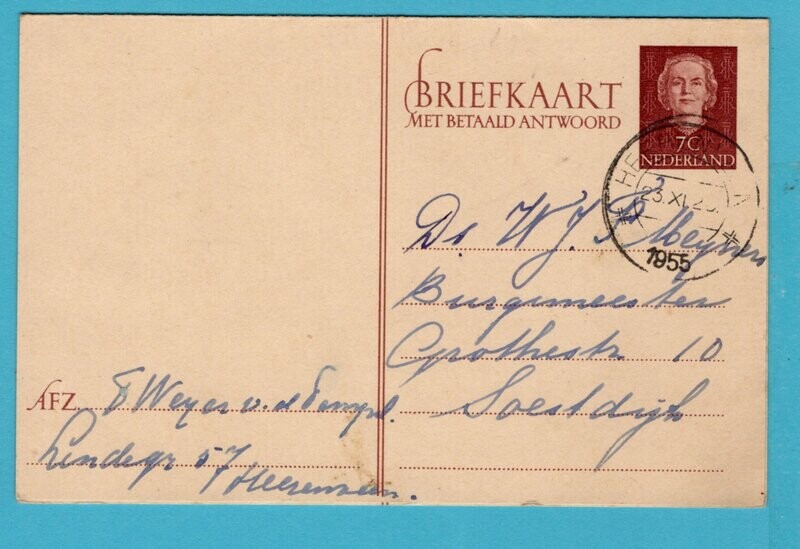 BRIEFKAART
MET BETAALD ANTWOORD
7C
NEDERLAND
23.XI.2
1955
Dr. W. J. P. Meyers
Burgemeester
Grothestr 10
Soestdijk
AFZ. Weyer v. d. Tempel.
Lindegr 57
Heerenveen.